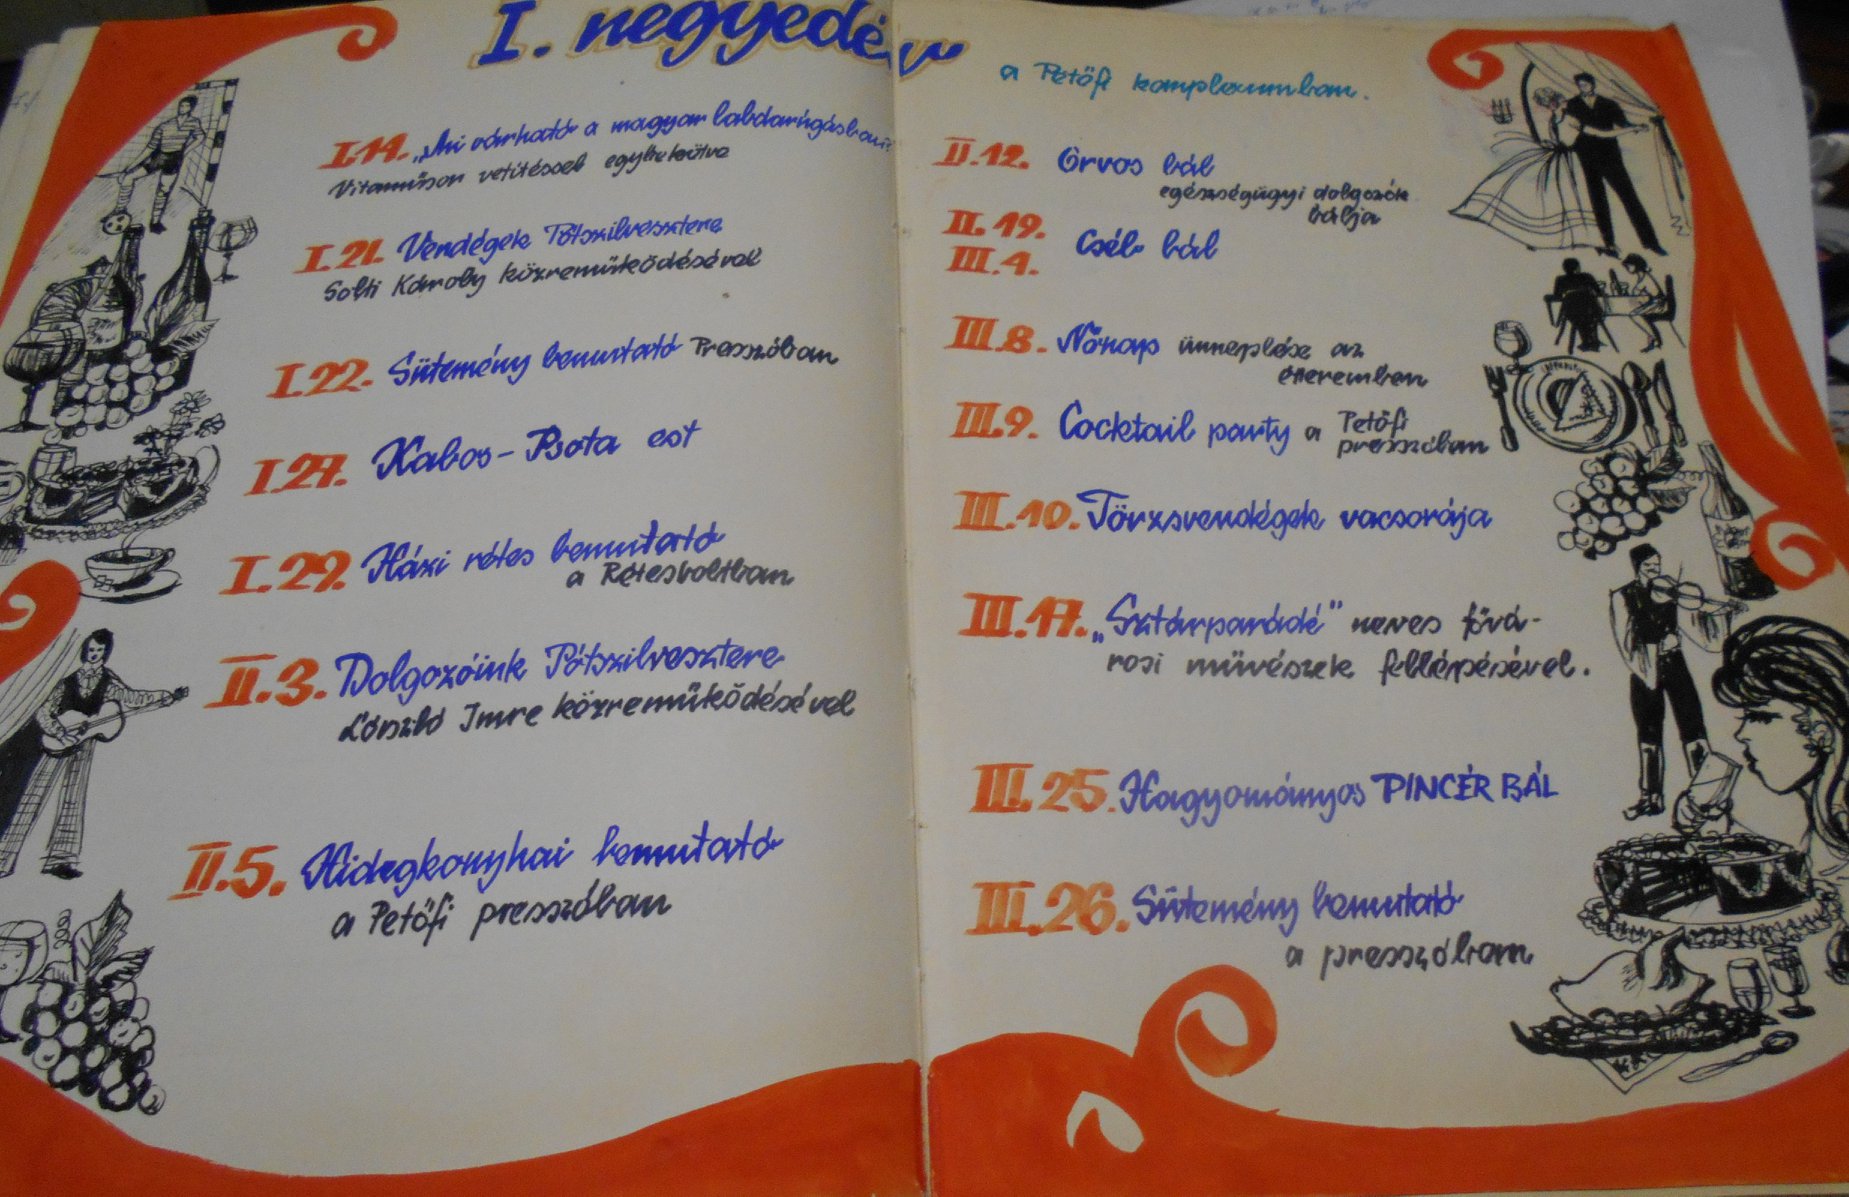 I. negyedév
I.14. „Mi várható a magyar labdarúgásban?
Vitaműsor vetítéssel egybekötve
I.21. Vendégek Pótszilvesztere
Solti Károly közreműködésével
I.22. Sütemény bemutató Presszóban
I.27. Kabos-Psota est
I.29. Házi rétes bemutató
a Rétesboltban
II.3. Dolgozóink Pótszilvesztere
László Imre közreműködésével
II.5. Hidegkonyhai bemutató
a Petőfi presszóban
a Petőfi komplexumban.
II.12. Orvos bál
egészségügyi dolgozók
bálja
II.19.
III.4. Cséb bál
III.8. Nőnap ünneplése az
étteremben
III.9. Cocktail party a Petőfi
presszóban
III.10. Törzsvendégek vacsorája
III.17. „Sztárparádé” neves fővá-
rosi művészek fellépésével.
III.25. Hagyományos PINCÉR BÁL
III.26. Sütemény bemutató
a presszóban